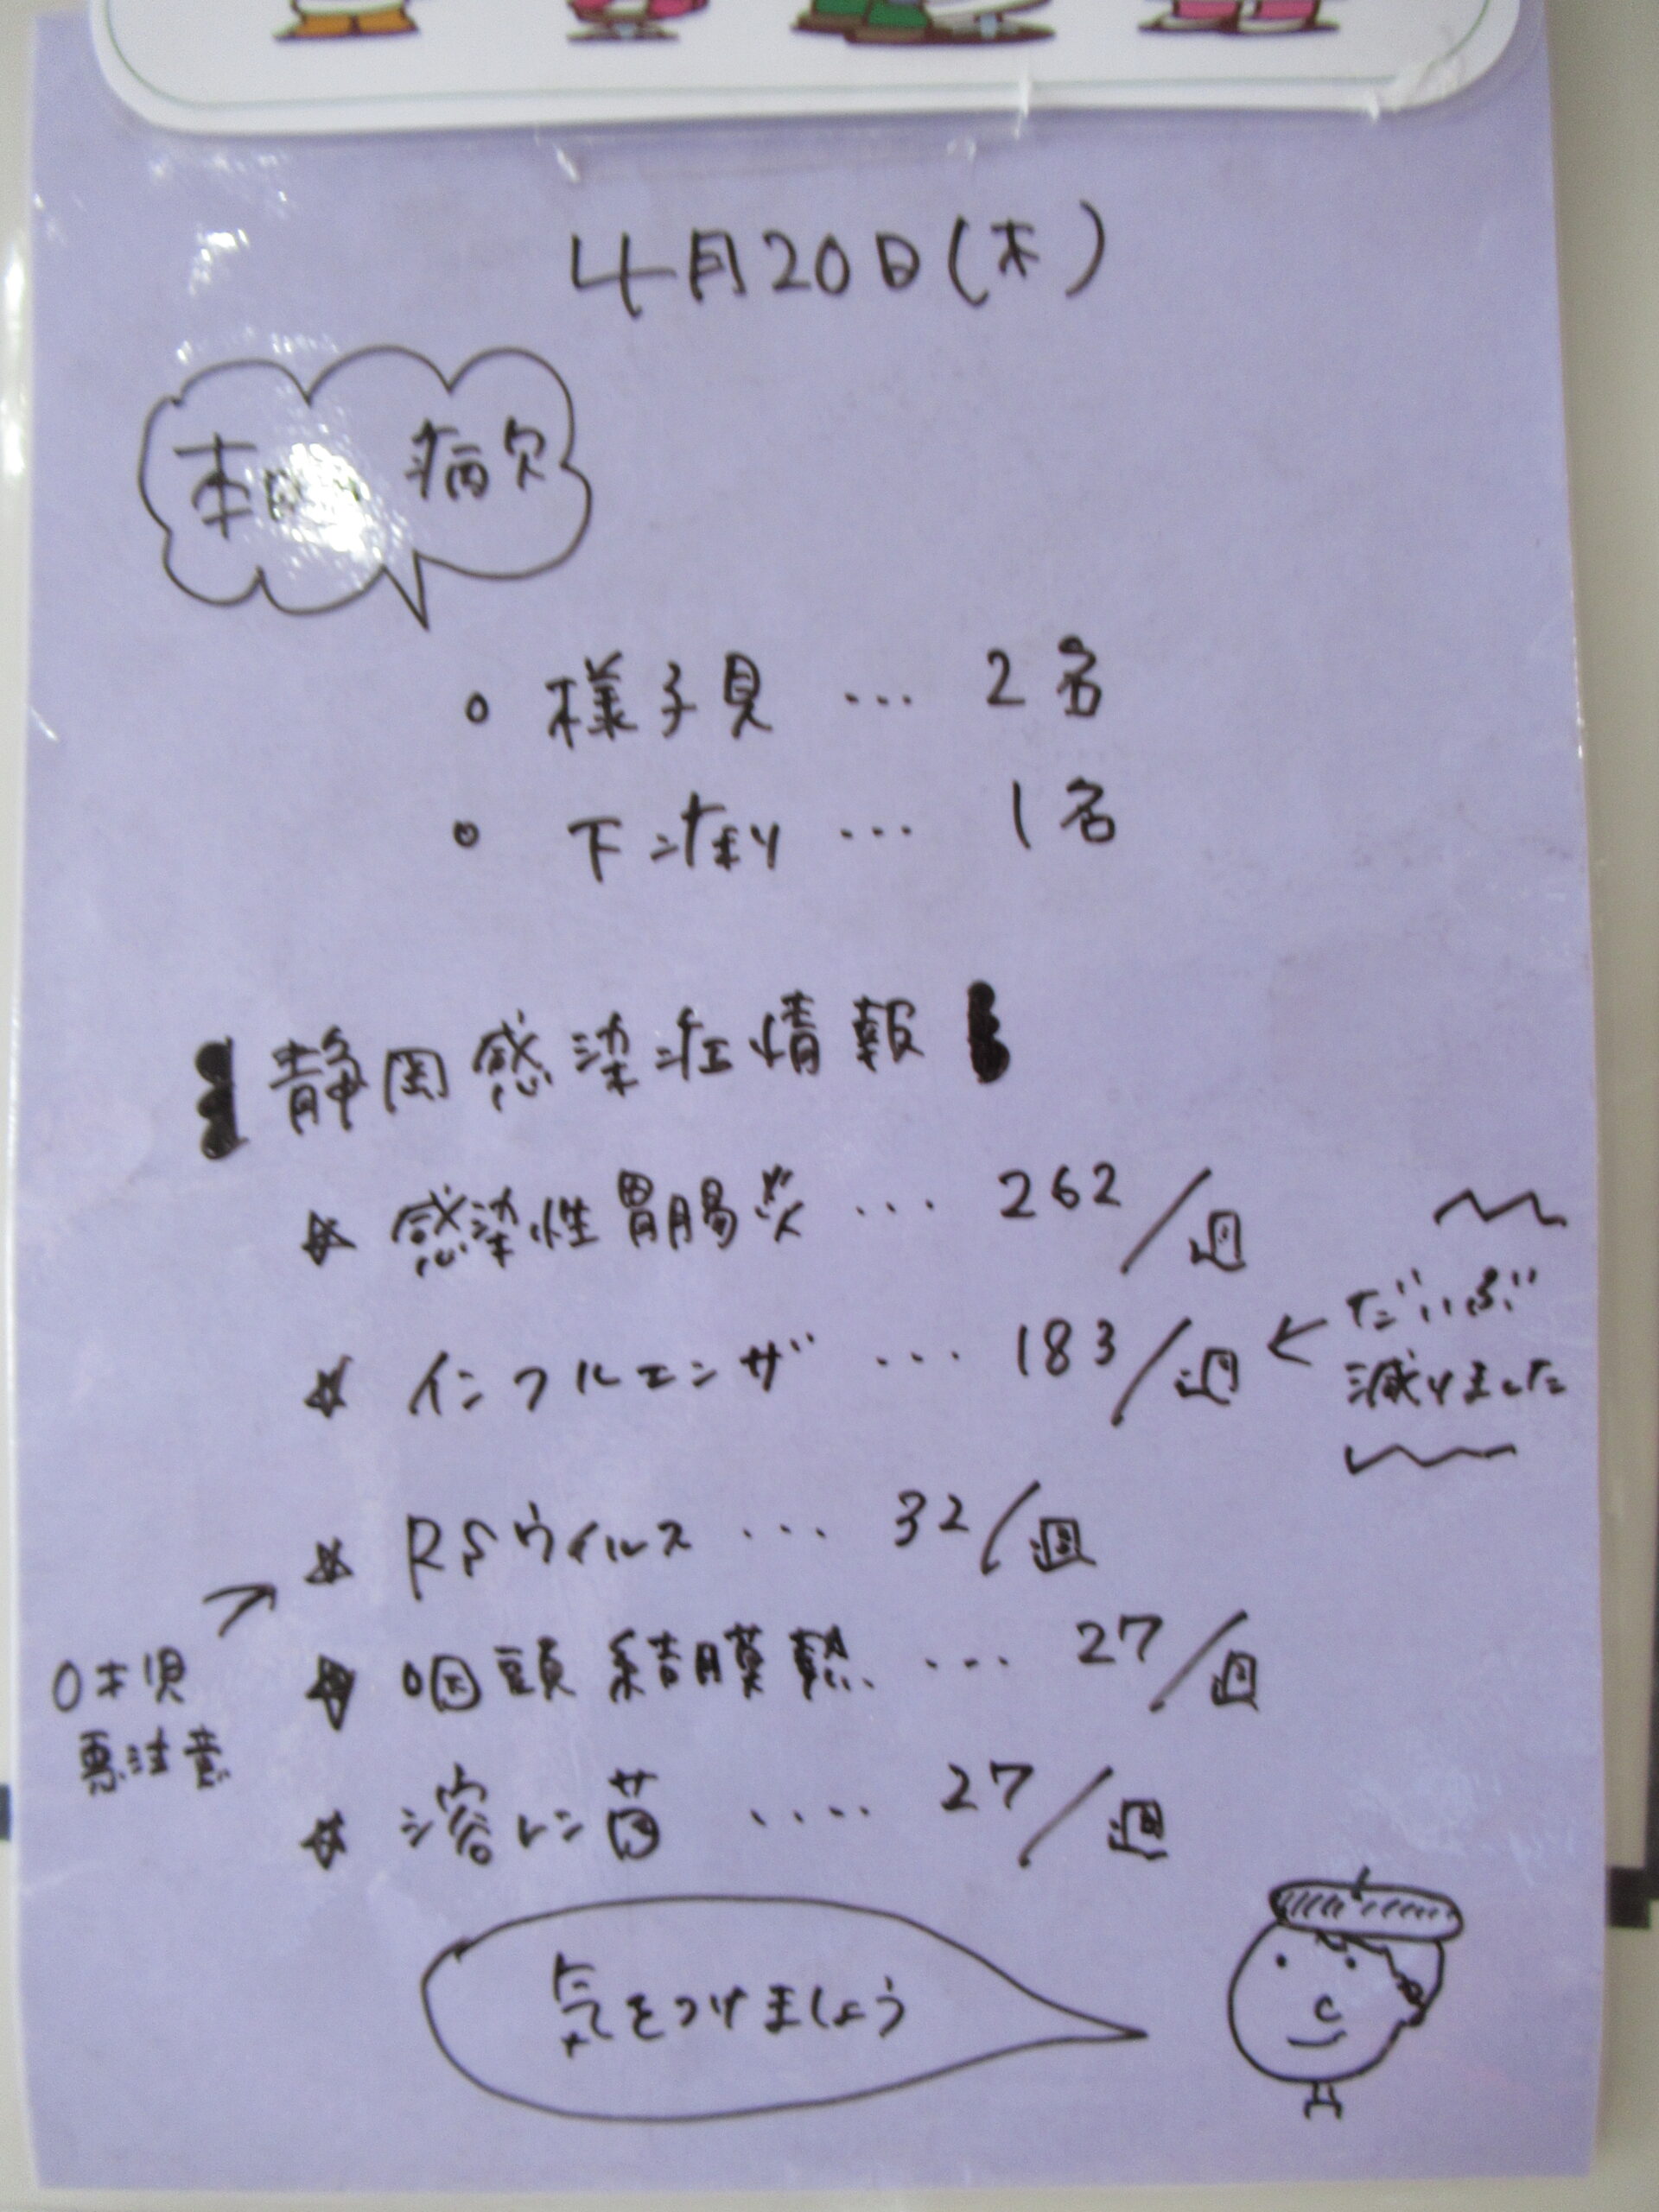 4月20日(木)
本日の 病欠
○ 様子見 … 2名
○ 下痢 … 1名
静岡感染症情報
☆ 感染性胃腸炎 … 262/週
☆ インフルエンザ … 183/週 ← だいぶ
減りました
☆ RSウイルス … 32/週
☆ 咽頭結膜熱 … 27/週
0才児
要注意
☆ 溶レン菌 …. 27/週
気をつけましょう